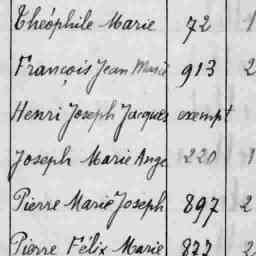 Théophile Marie 72 1
François Jean Marie 913 2
Henri Joseph Jacques exempt
Joseph Marie Ange 220 1
Pierre Marie Joseph 897 2
Pierre Félix Marie 877 2